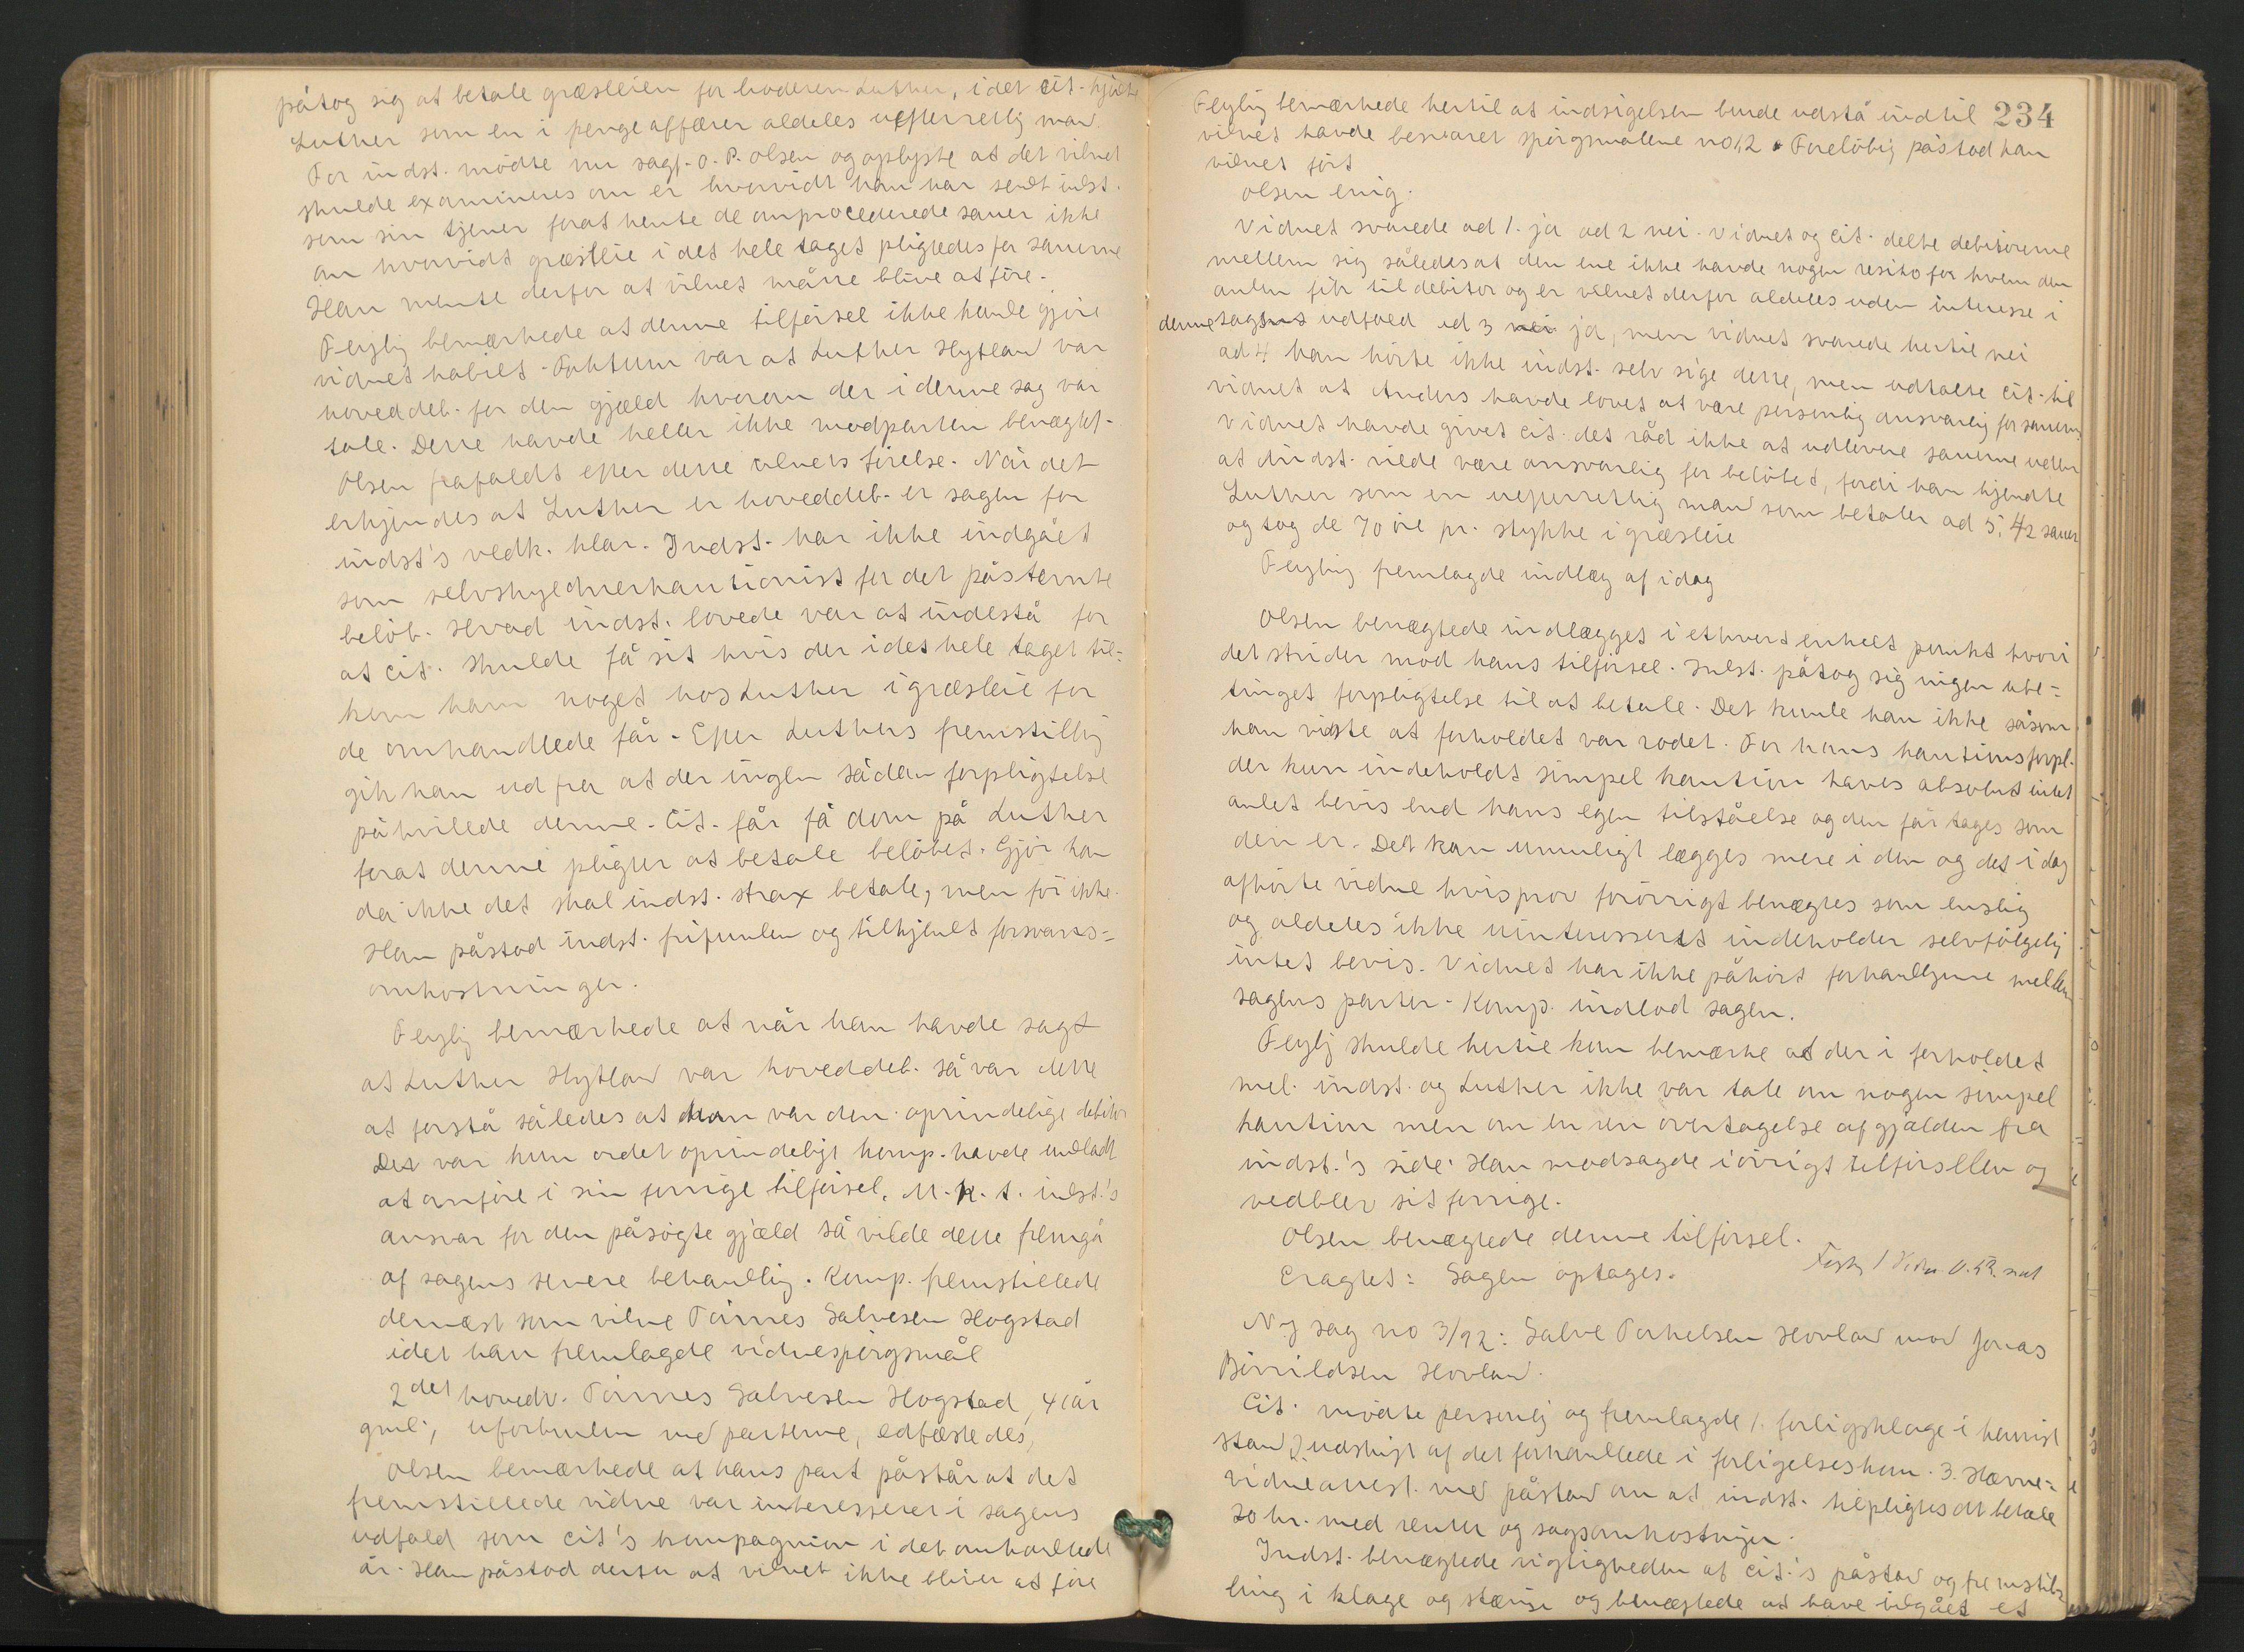 påtog sig at betale græsleien for broderen Luther, idet cit. kjendte
Luther som en i pengeaffærer aldeles uefterretlig mand.
For indst. mödte nu sagf. O. P. Olsen og oplyste at det vidnet
skulde examineres om er hvorvidt han har sendt indst.
som sin tjener forat hente de omprocederede sauer ikke
om hvorvidt græsleie i det hele taget pligtedes for sauerne
Han mente derfor at vidnet måtte blive at före.
Fleylig bemærkede at denne tilförsel ikke kunde gjöre
vidnet habilt. Faktum var at Luther Hytland var
hoveddeb. for den gjæld hvorom der i denne sag var
tale. Dette havde heller ikke modparten benægtet.
Olsen frafaldt efter dette vidnets förelse. Når det
erkjendes at Luther er hoveddeb. er sagen for
indst's vedk. klar. Indst. har ikke indgået
som selvskyldnerkautionist for det påstevnte
belöb. Hvad indst. lovede var at indestå for
at cit. skulde få sit hvis der i det hele taget til=
kom ham noget hos Luther i græsleie for
de omhandlede får. Efter Luthers fremstilling
gik han ud fra at der ingen sådan forpligtelse
påhvilede denne. Cit. får få dom på Luther
forat denne pligter at betale belöbet. Gjör han
da ikke det skal indst. strax betale, men för ikke.
Han påstod indst. frifunden og tilkjendt forsvars=
omkostninger.
Fleylig bemærkede at når han havde sagt
at Luther Hytland var hoveddeb. så var dette
at forstå således at han var den oprindelige debitor
Det var kun ordet oprindeligt komp. havde undladt
at anföre i sin forrige tilförsel. M. h. t. indst.'s
ansvar for den påsögte gjæld så vilde dette fremgå
af sagens senere behandling. Komp. fremstillede
dernæst som vidne Tönnes Salvesen Hogstad
idet han fremlagde vidnespörgsmål
2det hovedv. Tönnes Salvesen Hogstad, 41 år
gml., uforbunden med parterne, edfæstedes,
Olsen bemærkede at hans part påstår at det
fremstillede vidne var interesseret i sagens
udfald som cit's kompagnion i det omhandlede
år. Han påstod derfor at vidnet ikke bliver at före
234
Fleylig bemærkede hertil at indsigelsen burde udstå indtil
vidnet havde besvaret spörgsmålene no 1, 2. Foreløbig påstod han
vidnet fört
Olsen enig.
Vidnet svarede ad 1. ja ad 2 nei. Vidnet og cit. delte debitorerne
mellem sig således at den ene ikke havde nogen resiko for hvem den
anden fik til debitor og er vidnet derfor aldeles uden interesse i
denne sags udfald ad 3 nei ja, men vidnet svarede hertil nei
ad 4 han hörte ikke indst. selv sige dette, men udtalte cit. til
vidnet at Anders havde lovet at være personlig ansvarlig for sauerne
Vidnet havde givet cit. det råd ikke at udlevere sauerne uden
at indst. vilde være ansvarlig for belöbet, fordi han kjendte
Luther som en uefterretlig mand som betaler ad 5, 42 sauer
og tog de 70 öre pr. stykke i græsleie
Fleylig fremlagde indlæg af idag
Olsen benægtede indlægget i ethvert enkelt punkt hvori
det strider mod hans tilförsel. Indst. påtog sig ingen ube=
tinget forpligtelse til at betale. Det kunde han ikke såsom
han vidste at forholdet var rodet. For hans kautionsforpl.
der kun indeholdt simpel kaution haves absolut intet
andet bevis end hans egen tilståelse og den får tages som
den er. Det kan umuligt lægges mere i den og det i dag
afhörte vidne hvis prov forövrigt benægtes som enslig
og aldeles ikke uinteresseret indeholder selvfölgelig
intet bevis. Vidnet har ikke påhört forhandlingerne mellem
sagens parter. Komp. indlod sagen.
Fleylig skulde hertil kun bemærke at der i forholdet
mel. indst. og Luther ikke var tale om nogen simpel
kaution men om en ren overtagelse af gjælden fra
indst.'s side. Han modsagde iövrigt tilförsellen og
vedblev sit forrige.
Olsen benægtede denne tilförsel.
Eragtet: Sagen optages.
Ny sag no 3/92: Salve Torkelsen Hovland mod Jonas
Bérrildsen Hovland.
Cit. mödte personlig og fremlagde 1. forligsklage i hævist
stand 2 udskrift af det forhandlede i forligelseskom. 3. Stævne=
vidneattest. med påstand om at indst. tilpligtes at betale
20 kr. med renter og sagsomkostninger.
Indst. benægtede rigtigheden af cit.'s påstand og fremstil=
ling i klage og stævning og benægtede at have indgået et